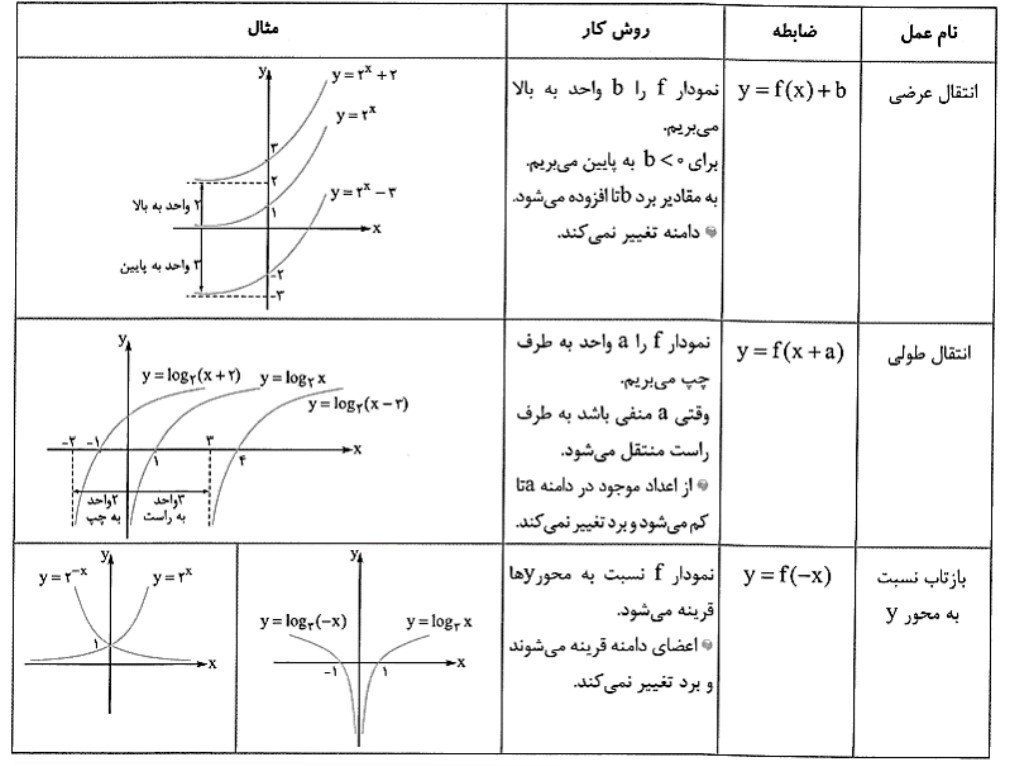 نام عمل
ضابطه
روش کار
مثال
انتقال عرضی
y = f(x) + b
نمودار f را b واحد به بالا
می‌بریم.
برای b < ۰ به پایین می‌بریم.
به مقادیر برد b تا افزوده می‌شود.
دامنه تغییر نمی‌کند.
y
y = ۲ˣ + ۲
y = ۲ˣ
۳
۲
y = ۲ˣ − ۳
۲ واحد به بالا
۱
x
۳ واحد به پایین
−۲
−۳
انتقال طولی
y = f(x + a)
نمودار f را a واحد به طرف
چپ می‌بریم.
وقتی a منفی باشد به طرف
راست منتقل می‌شود.
از اعداد موجود در دامنه a تا
کم می‌شود و برد تغییر نمی‌کند.
y
y = log₂(x + ۲)
y = log₂ x
y = log₂(x − ۳)
−۲
−۱
۳
x
۱
۴
۳ واحد
به راست
۲ واحد
به چپ
بازتاب نسبت
به محور y
y = f(−x)
نمودار f نسبت به محور y ها
قرینه می‌شود.
اعضای دامنه قرینه می‌شوند
و برد تغییر نمی‌کند.
y
y = log₃(−x)
y = log₃ x
x
−۱
۱
y
y = ۲⁻ˣ
y = ۲ˣ
۱
x